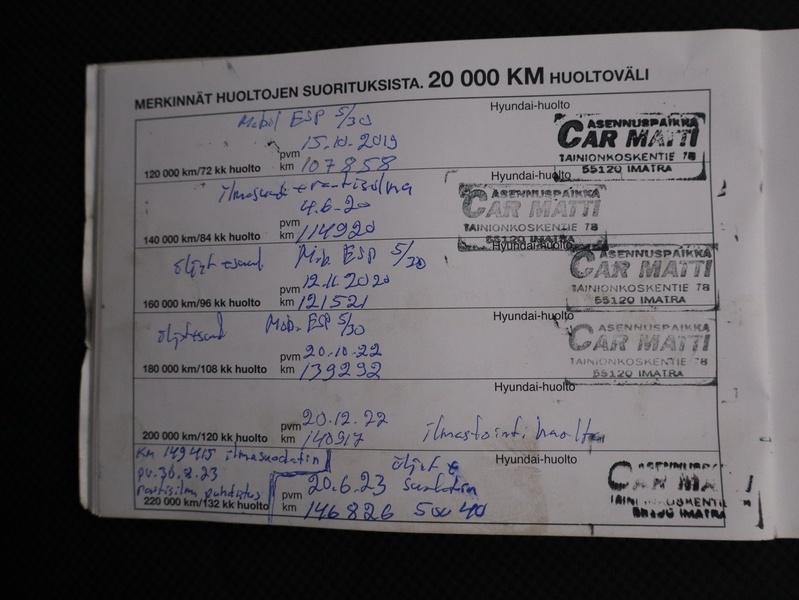 MERKINNÄT HUOLTOJEN SUORITUKSISTA. 20 000 KM HUOLTOVÄLI
Mobil ESP 5/30
Hyundai-huolto
pvm 15.10.2019
120 000 km/72 kk huolto km 107858
ASENNUSPAIKKA
CAR MATTI
TAINIONKOSKENTIE 78
55120 IMATRA
Hyundai-huolto
4.6-20
pvm
140 000 km/84 kk huolto km 114920
ASENNUSPAIKKA
CAR MATTI
TAINIONKOSKENTIE 78
55120 IMATRA
Hyundai-huolto
öljyt + Mob. ESP 5/30
pvm 12.11.2020
160 000 km/96 kk huolto km 121521
ASENNUSPAIKKA
CAR MATTI
TAINIONKOSKENTIE 78
55120 IMATRA
Hyundai-huolto
Mob. ESP 5/30
pvm 20-10-22
180 000 km/108 kk huolto km 139292
ASENNUSPAIKKA
CAR MATTI
TAINIONKOSKENTIE 78
55120 IMATRA
Hyundai-huolto
pvm 20.12.22
200 000 km/120 kk huolto km 140917 ilmastoint. huolto
Hyundai-huolto
km 149415 ilmasuodatin
pv. 30.8.23
raitisilm puhdistus
öljyt +
pvm 20.6.23 suodatin
220 000 km/132 kk huolto km 146826 5w40
CAR MA
55120 IMATRA